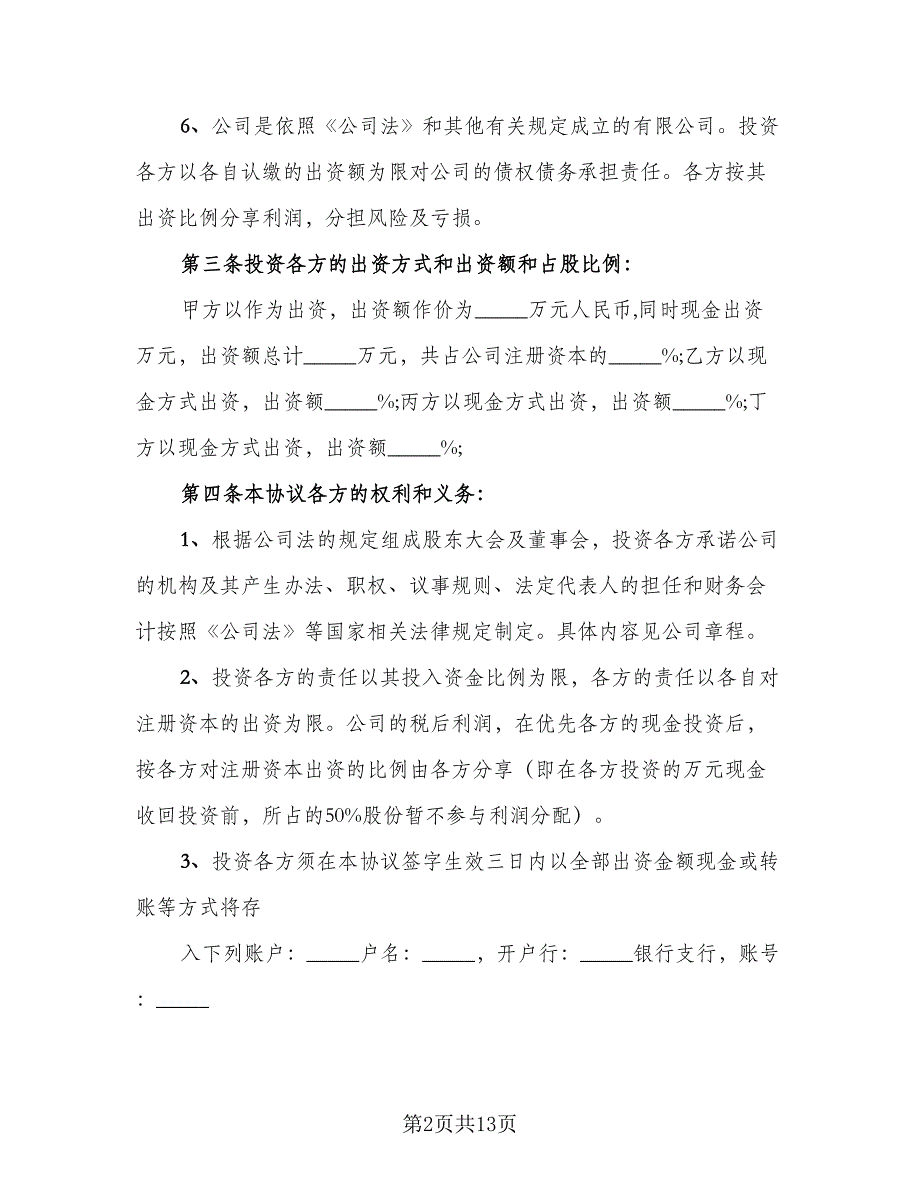 6、公司是依照《公司法》和其他有关规定成立的有限公司。投资
各方以各自认缴的出资额为限对公司的债权债务承担责任。各方按其
出资比例分享利润，分担风险及亏损。
第三条投资各方的出资方式和出资额和占股比例：
甲方以作为出资，出资额作价为_____万元人民币,同时现金出资
万元，出资额总计_____万元，共占公司注册资本的_____%;乙方以现
金方式出资，出资额_____%;丙方以现金方式出资，出资额_____%;丁
方以现金方式出资，出资额_____%;
第四条本协议各方的权利和义务：
1、根据公司法的规定组成股东大会及董事会，投资各方承诺公司
的机构及其产生办法、职权、议事规则、法定代表人的担任和财务会
计按照《公司法》等国家相关法律规定制定。具体内容见公司章程。
2、投资各方的责任以其投入资金比例为限，各方的责任以各自对
注册资本的出资为限。公司的税后利润，在优先各方的现金投资后，
按各方对注册资本出资的比例由各方分享（即在各方投资的万元现金
收回投资前，所占的50%股份暂不参与利润分配）。
3、投资各方须在本协议签字生效三日内以全部出资金额现金或转
账等方式将存
入下列账户：_____户名：_____，开户行：_____银行支行，账号
：_____
第2页共13页